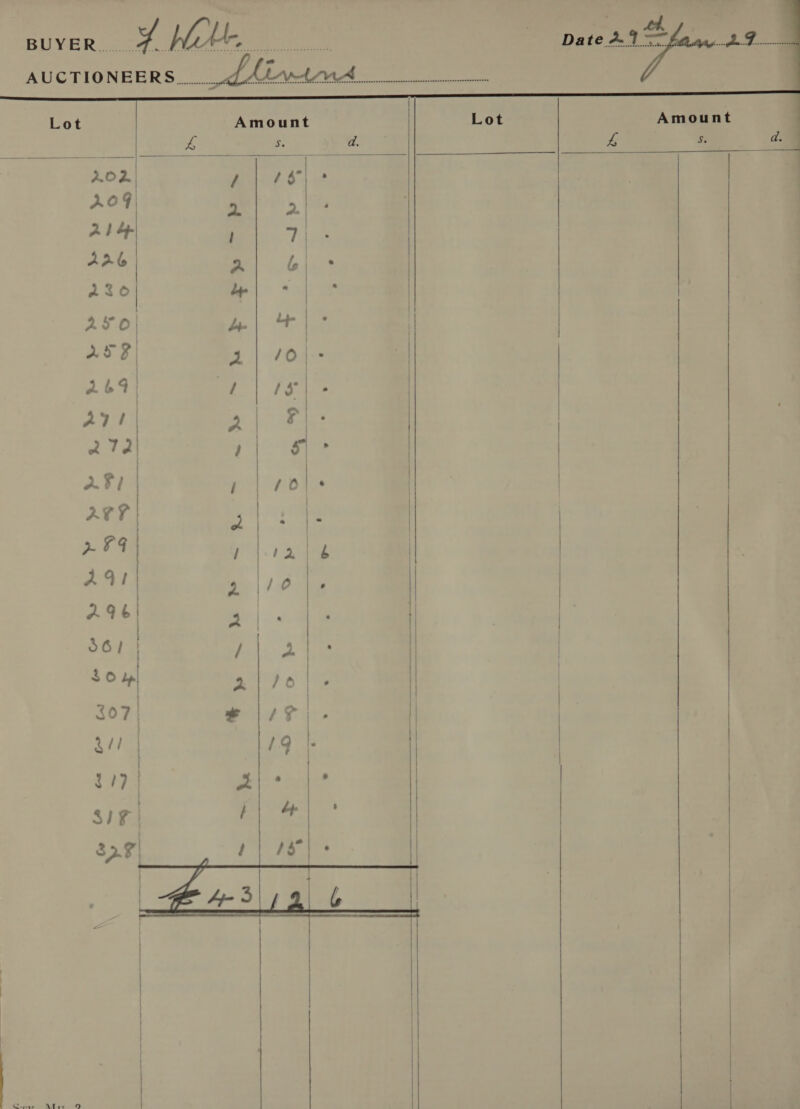 BUYER F. Hall Date 29th Jan 29
AUCTIONEERS
Lot Amount Lot Amount
£ s. d. £ s. d.
202 1 15 •
209 2 2 •
214 1 7 •
226 2 6 •
230 4 • •
250 4 4 •
258 2 10 •
269 1 15 •
271 2 8 •
272 1 5 •
281 1 10 •
288 2 • •
289 1 12 6
291 2 10 •
296 2 • •
301 1 2 •
304 2 10 •
307 18 •
311 19 •
317 2 • •
318 1 4 •
328 1 15 •
£43 12 6